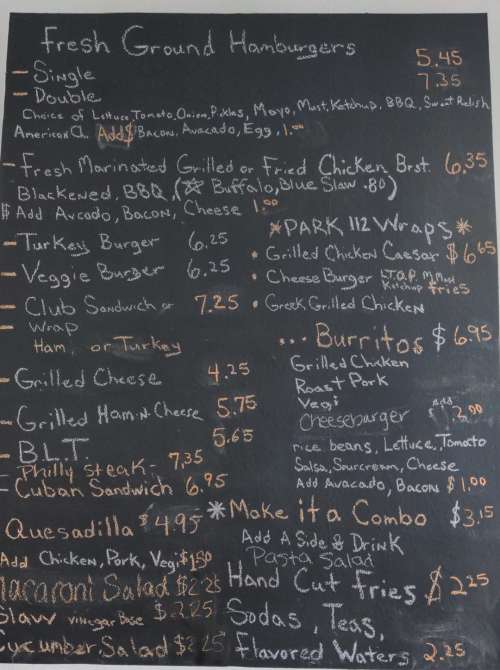 Fresh Ground Hamburgers
- Single 5.45
- Double 7.35
Choice of Lettuce, Tomato, Onion, Pickles, Mayo, Must, Ketchup, BBQ, Sweet Relish
American Ch. Add $ Bacon, Avacado, Egg, 1.00
- Fresh Marinated Grilled or Fried Chicken Brst. 6.35
Blackened, BBQ, (☆ Buffalo, Blue Slaw .80)
$ Add Avcado, Bacon, Cheese 1.00
- Turkey Burger 6.25
- Veggie Burger 6.25
- Club Sandwich or 7.25
- Wrap
Ham, or Turkey
- Grilled Cheese 4.25
- Grilled Ham-N-Cheese 5.75
- B.L.T. 5.65
Philly Steak- 7.35
- Cuban Sandwich 6.95
Quesadilla $4.95
Add Chicken, Pork, Vegi $1.50
Macaroni Salad $2.25
Slaw vinegar Base $2.25
Cucumber Salad $2.25
*PARK 112 Wraps*
• Grilled Chicken Caesar $6.65
• Cheese Burger L.T.O.P. M, Must Ketchup fries
• Greek Grilled Chicken
... Burritos $6.95
Grilled Chicken
Roast Pork
Vegi
Cheeseburger add $2.00
rice beans, Lettuce, Tomato
Salsa, Sourcream, Cheese
Add Avacado, Bacon $1.00
*Make it a Combo $3.15
Add A Side & Drink
Pasta Salad
Hand Cut Fries $2.25
Sodas, Teas,
Flavored Waters, 2.25